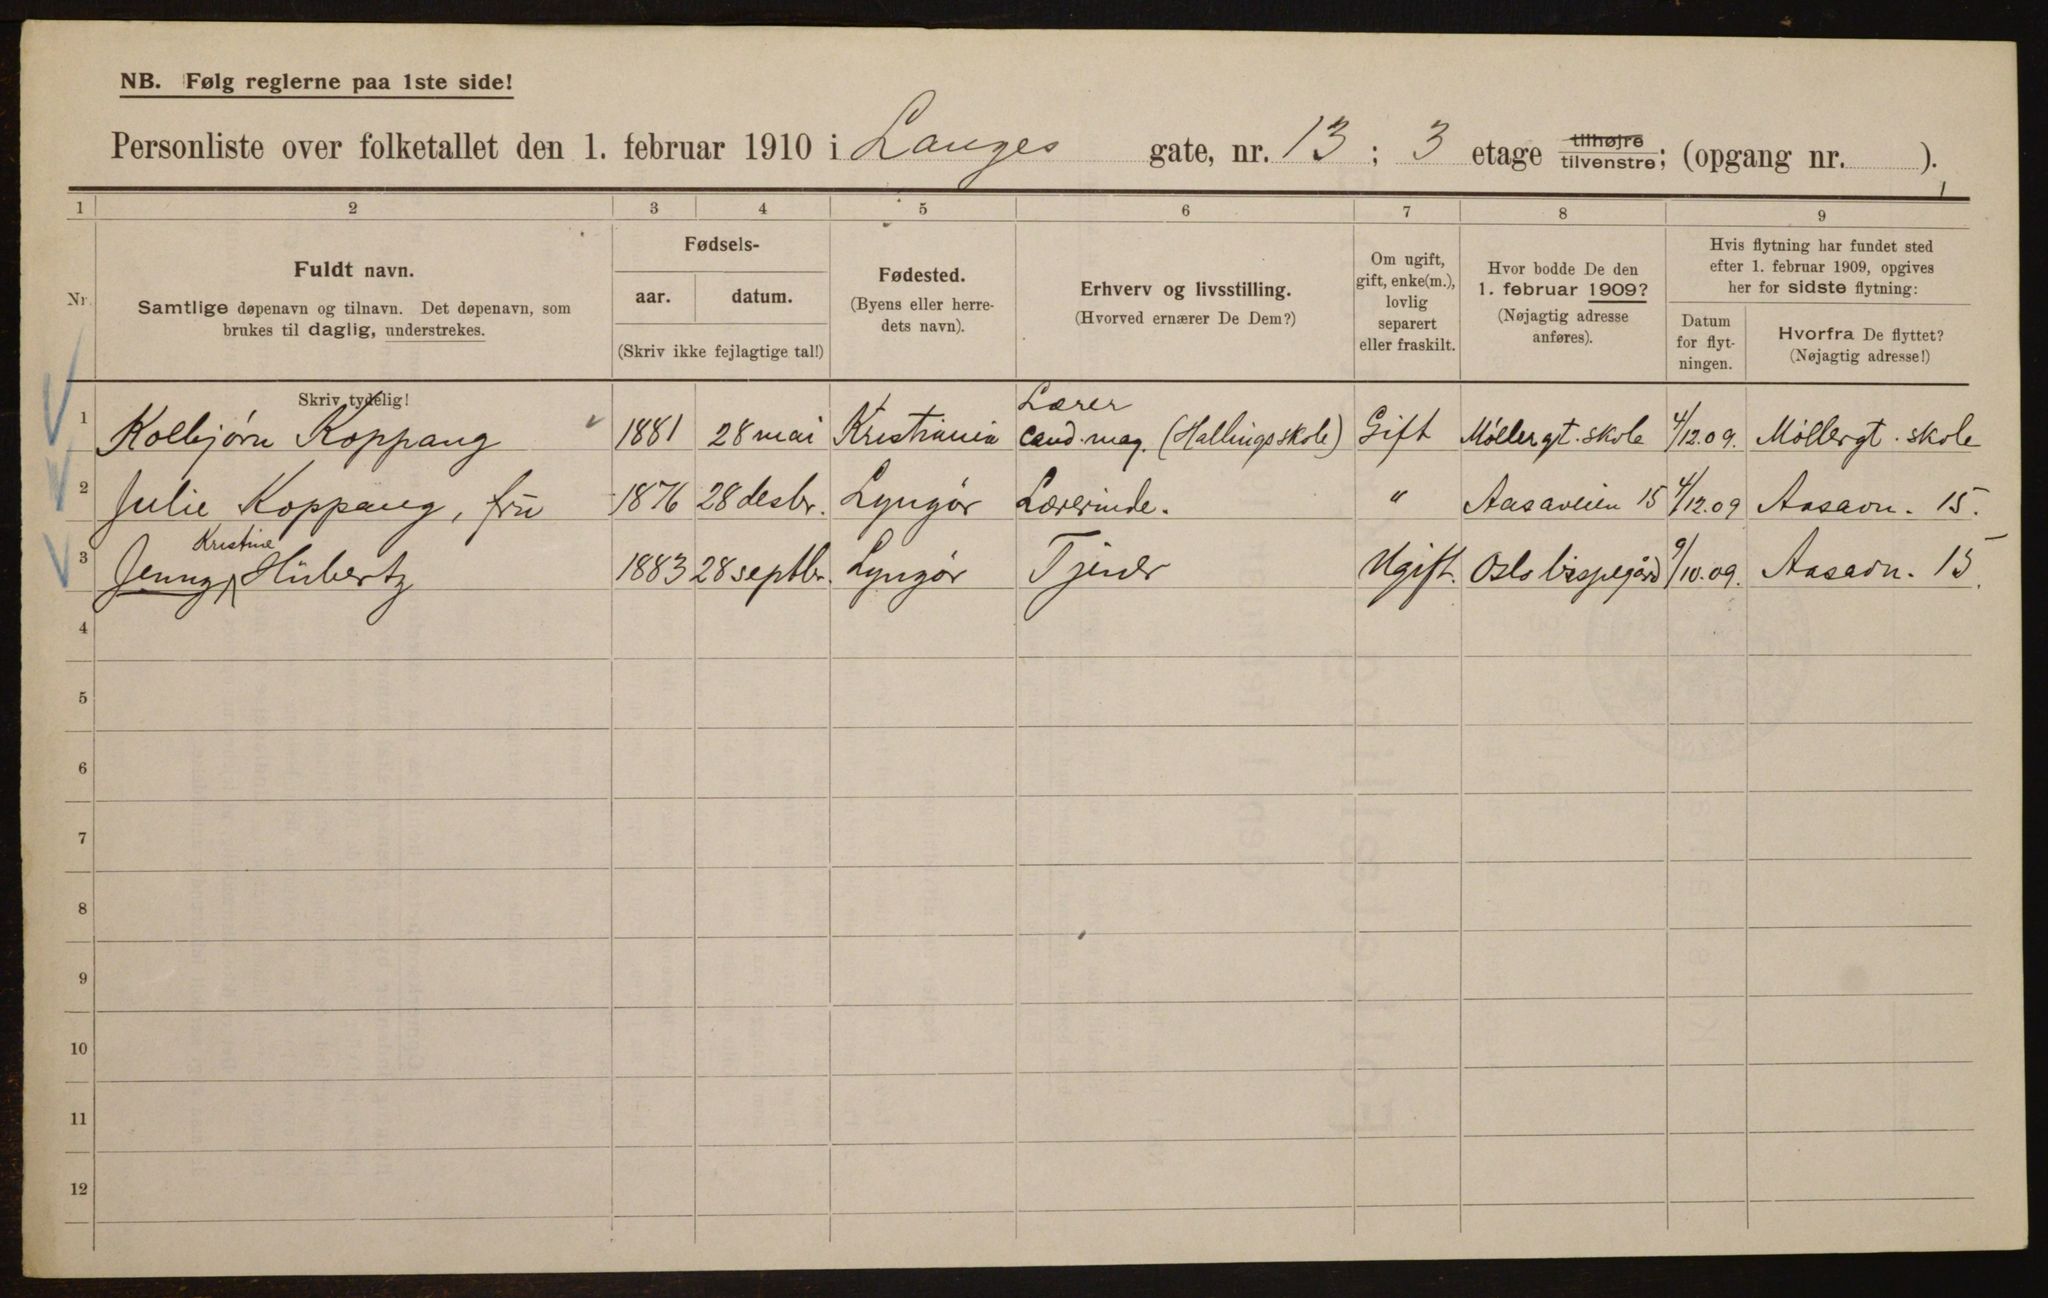 NB. Følg reglerne paa 1ste side!
Personliste over folketallet den 1. februar 1910 i Langes gate, nr. 13 ; 3 etage tilhøjre tilvenstre; (opgang nr. ).
1 2 3 4 5 6 7 8 9
Nr.
Fuldt navn.
Samtlige døpenavn og tilnavn. Det døpenavn, som
brukes til daglig, understrekes.
Fødsels-
aar. datum.
(Skriv ikke fejlagtige tal!)
Fødested.
(Byens eller herre-
dets navn).
Erhverv og livsstilling.
(Hvorved ernærer De Dem?)
Om ugift,
gift, enke(m.),
lovlig
separert
eller fraskilt.
Hvor bodde De den
1. februar 1909?
(Nøjagtig adresse
anføres).
Hvis flytning har fundet sted
efter 1. februar 1909, opgives
her for sidste flytning:
Datum
for flyt-
ningen.
Hvorfra De flyttet?
(Nøjagtig adresse!)
Skriv tydelig!
Lærer
1 Kolbjørn Koppang 1881 28 mai Kristiania cand. mag. (Hallings skole) Gift Møllergt. skole 4/12.09. Møllergt. skole
2 Julie Koppang, fru 1876 28 desbr. Lyngør Lærerinde. " Aasaveien 15 4/12.09 Aasavn. 15.
Kristine
3 Jenny Hübertz 1883 28 septbr. Lyngør Tjener Ugift. Oslo bispegård 9/10.09. Aasavn. 15.
4
5
6
7
8
9
10
11
12